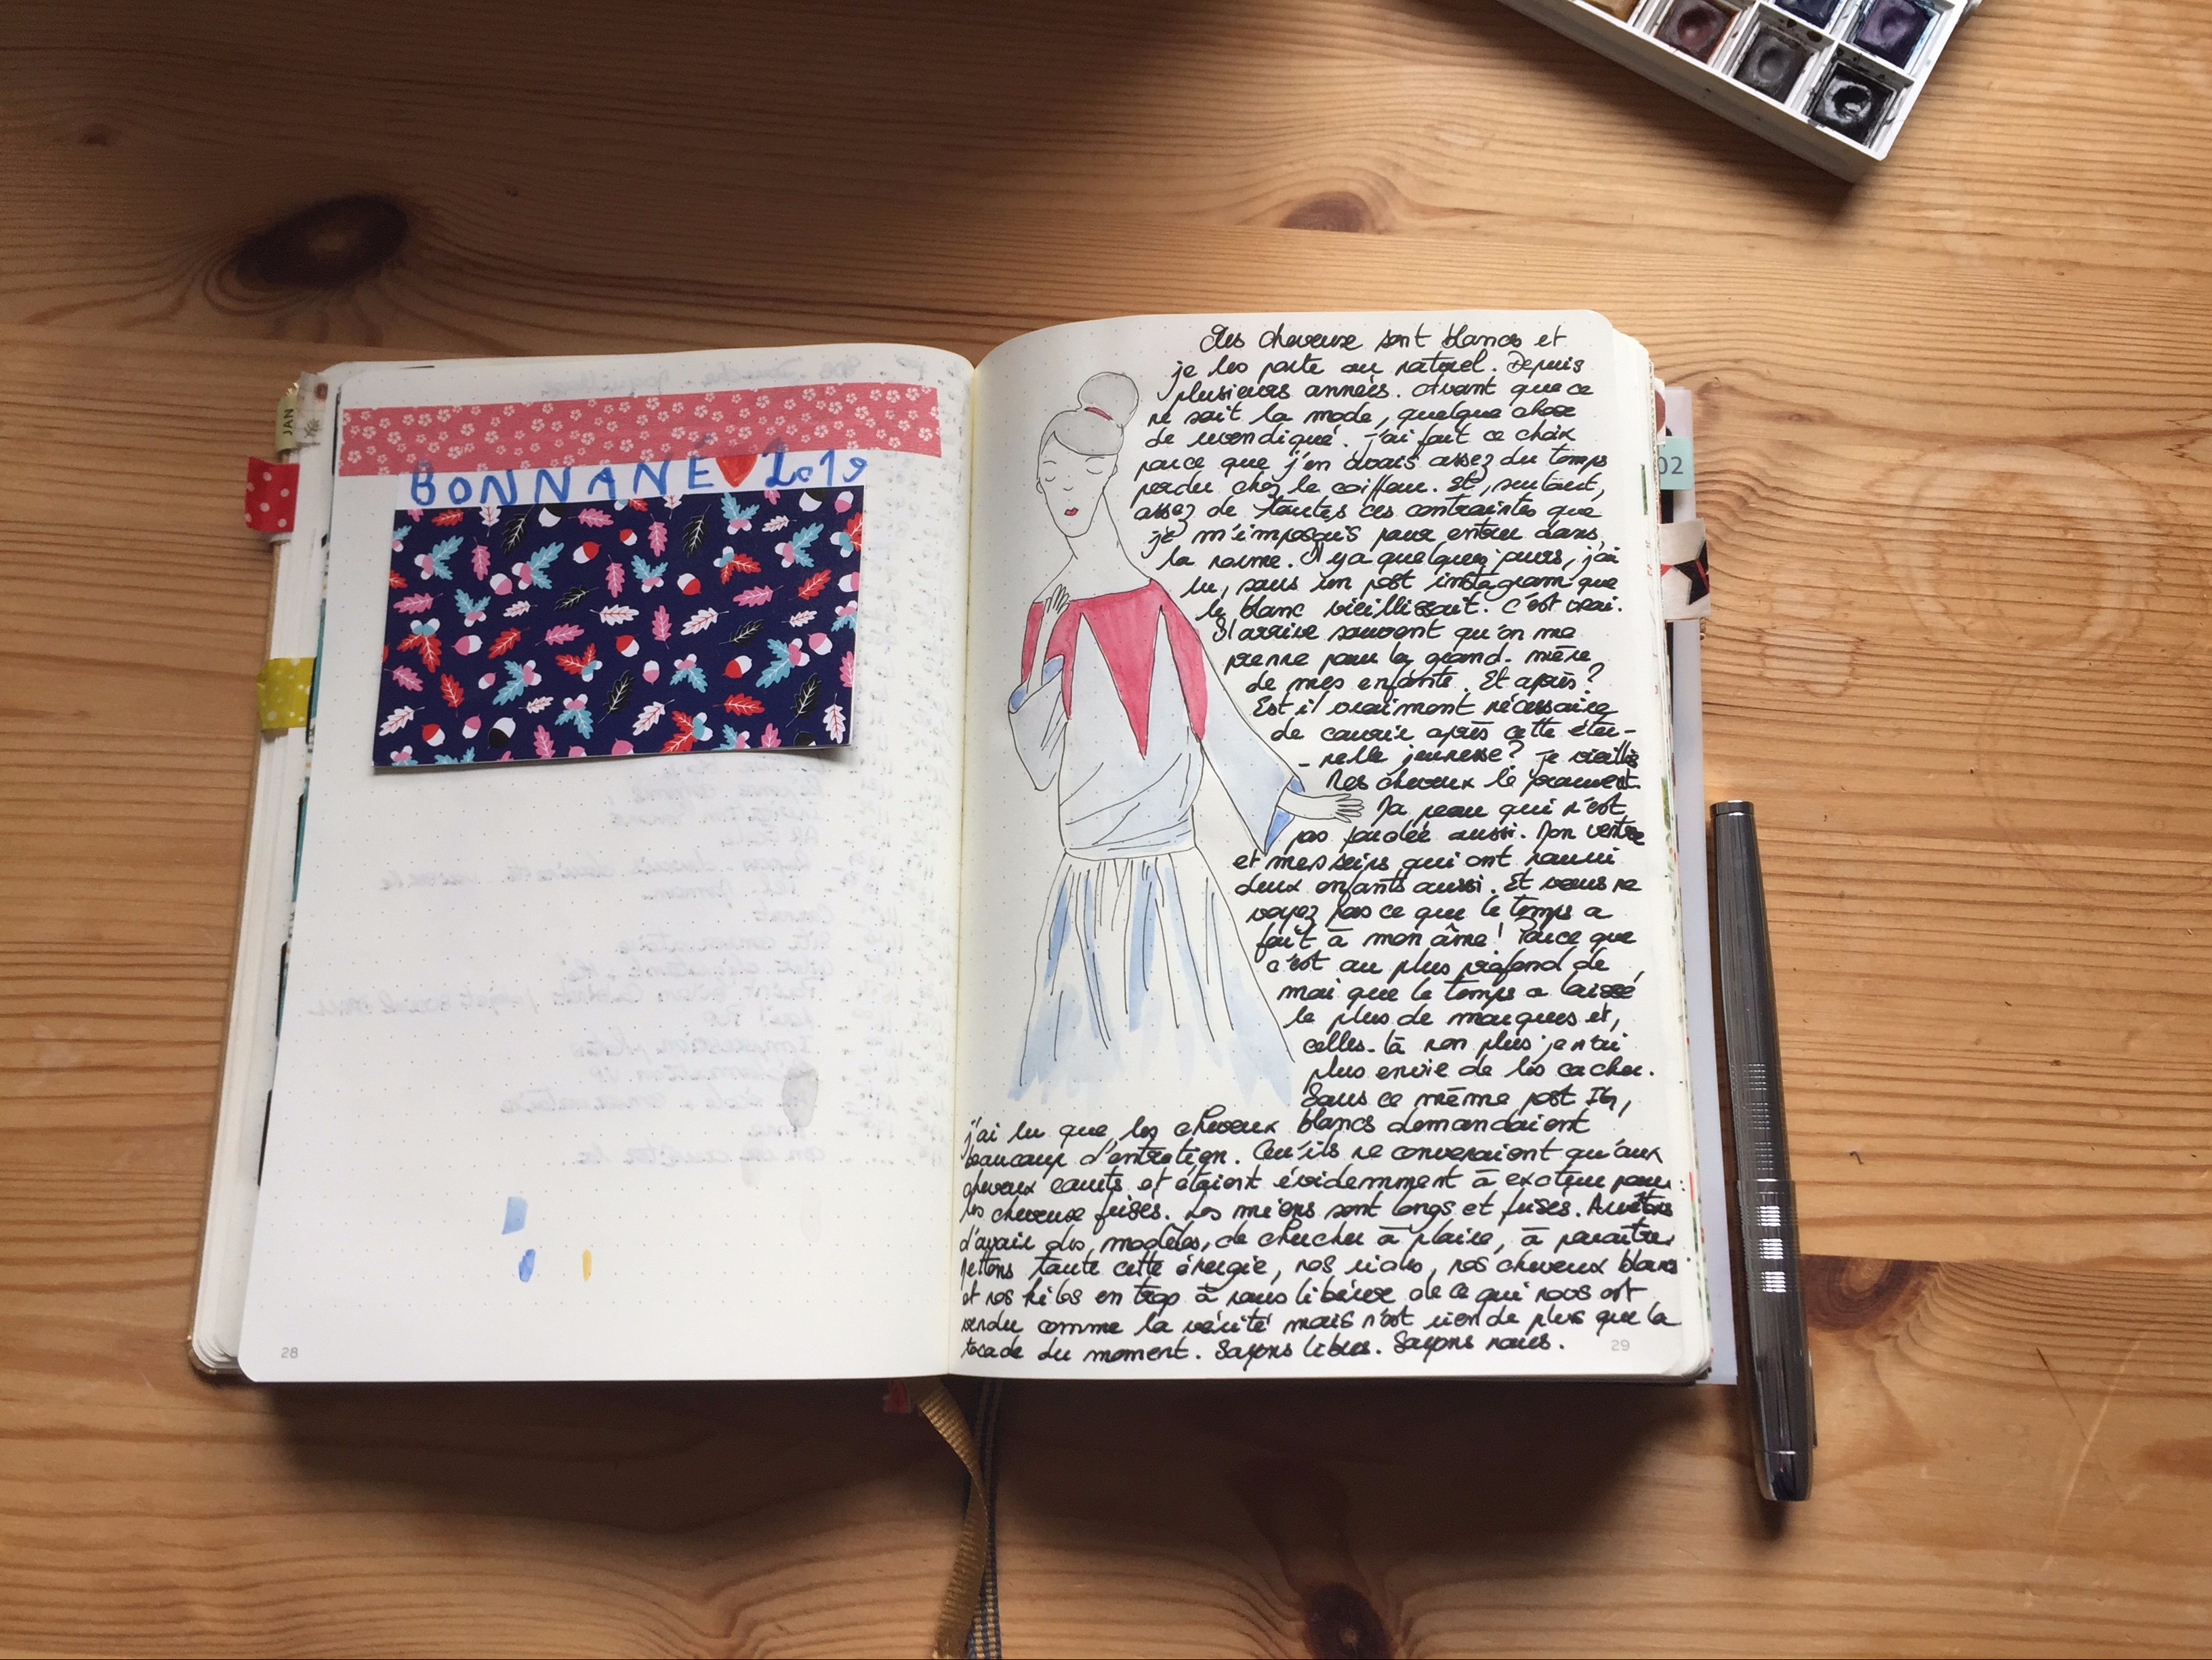 JAN
BONNANÉ 2019
28
02
Mes cheveux sont blancs et
je les porte au naturel. Depuis
plusieurs années. Avant que ce
ne soit la mode, quelque chose
de revendiqué. J'ai fait ce choix
parce que j'en avais assez du temps
perdu chez le coiffeur. Et, surtout,
assez de toutes ces contraintes que
je m'imposais pour entrer dans
la norme. Il y a quelques jours, j'ai
lu, sous un post instagram que
le blanc vieillissait. C'est vrai.
Il arrive souvent qu'on me
prenne pour la grand-mère
de mes enfants. Et après ?
Est il vraiment nécessaire
de courir après cette éter-
-nelle jeunesse ? Je vieillis
Mes cheveux le prouvent.
Ma peau qui n'est
pas fardée aussi. Mon ventre
et mes seins qui ont nourri
deux enfants aussi. Et vous ne
voyez pas ce que le temps a
fait à mon âme ! Parce que
c'est au plus profond de
moi que le temps a laissé
le plus de marques et,
celles-là non plus je n'ai
plus envie de les cacher.
Sous ce même post IG,
j'ai lu que les cheveux blancs demandaient
beaucoup d'entretien. Qu'ils ne convenaient qu'aux
cheveux courts et étaient évidemment à exclure pour
les cheveux frisés. Les miens sont longs et frisés. Arrêtons
d'avoir des modèles, de chercher à plaire, à paraître.
Mettons toute cette énergie, nos rides, nos cheveux blancs
et nos kilos en trop à nous libérer de ce qui nous est
vendu comme la vérité mais n'est rien de plus que la
tocade du moment. Soyons libres. Soyons nous.
29